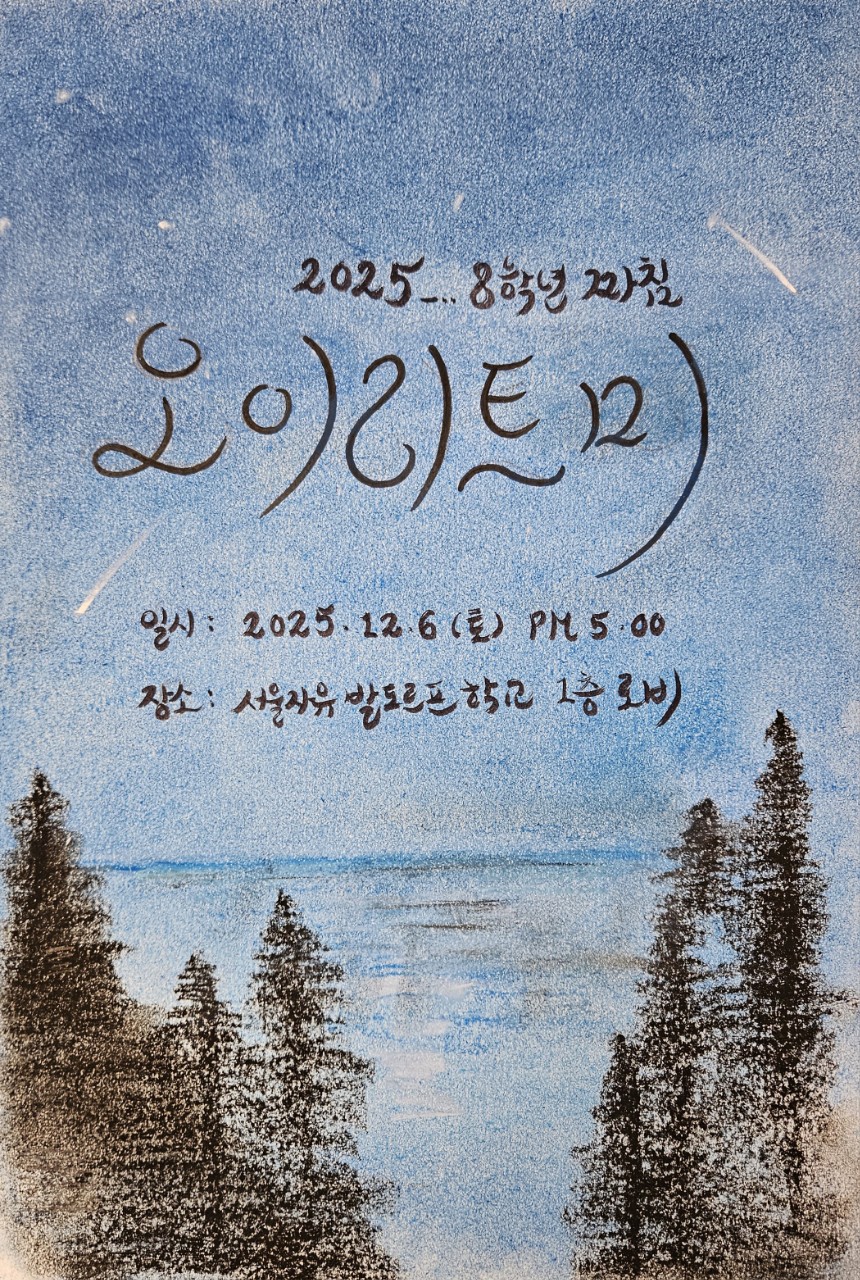 2025_... 8학년 마침
오이리트미
일시 : 2025. 12. 6 (토) PM 5.00
장소 : 서울자유 발도르프 학교 1층 로비